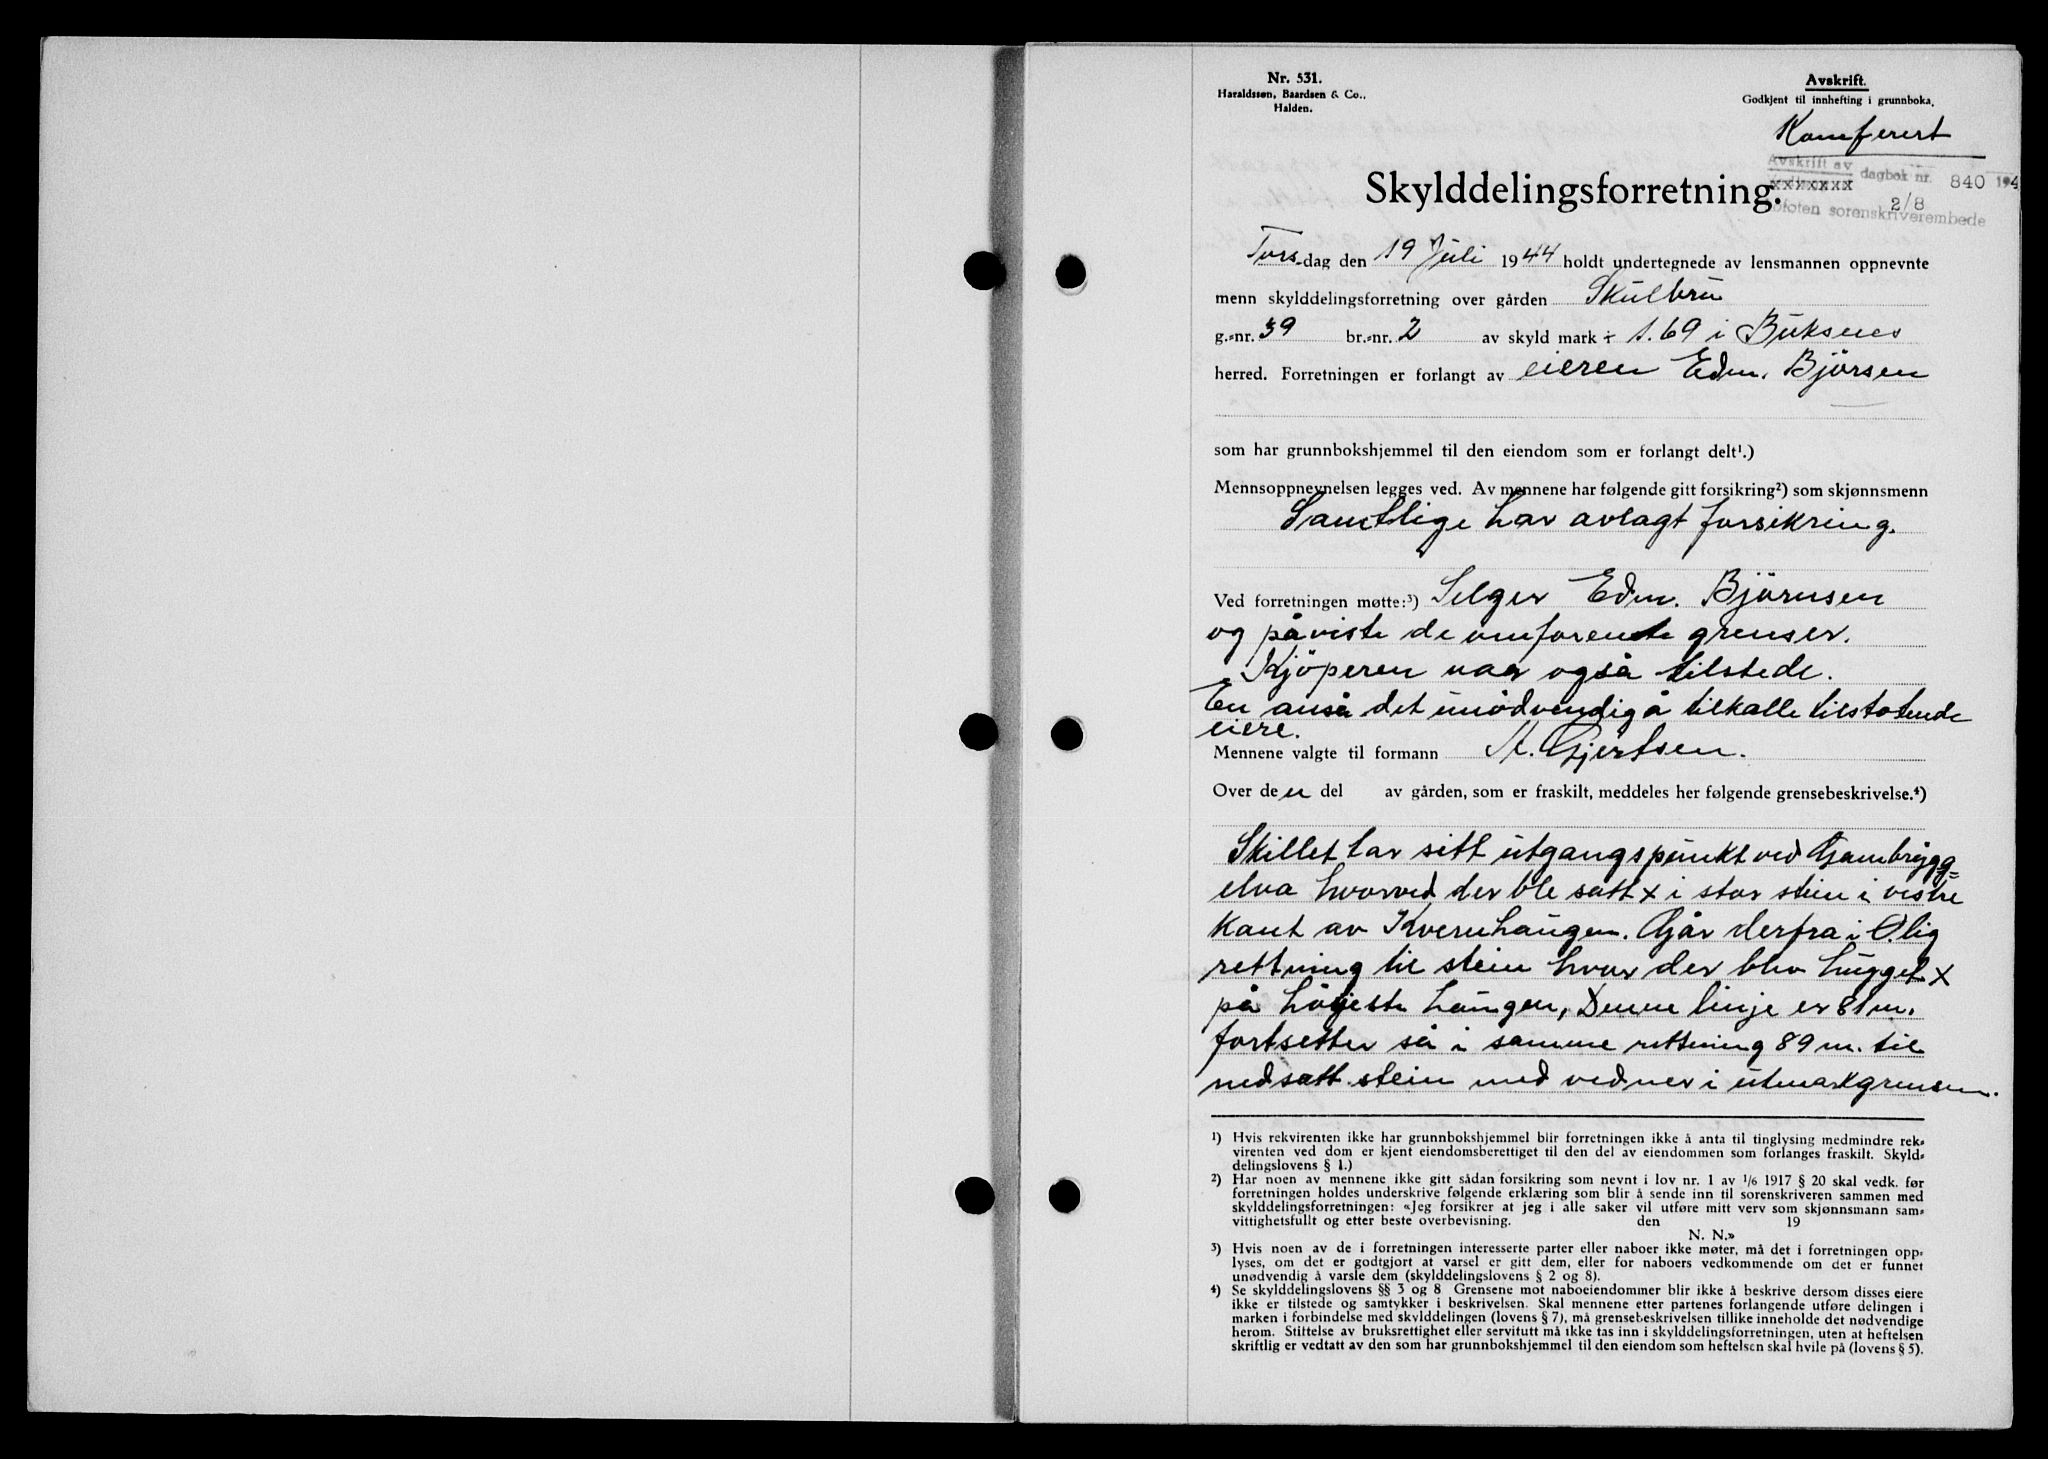 Nr. 531.
Haraldssøn, Baardsen & Co.,
Halden.
Avskrift.
Godkjent til innhefting i grunnboka.
Komferert
Avskrift av dagbok nr. 840 194
xxxxxxx 2/8
ofoten sorenskriverembede
Skylddelingsforretning.
Torsdag den 19 Juli 1944 holdt undertegnede av lensmannen oppnevnte
menn skylddelingsforretning over gården Skulbru
g.-nr. 39 br.-nr. 2 av skyld mark ÷ 1.69 i Buksnes
herred. Forretningen er forlangt av eieren Edm. Bjørsen
som har grunnbokshjemmel til den eiendom som er forlangt delt¹.)
Mennsoppnevnelsen legges ved. Av mennene har følgende gitt forsikring²) som skjønnsmenn
Samtlige har avlagt forsikring.
Ved forretningen møtte:³) Selger Edm. Björnsen
og påviste de omforente grenser.
Kjöperen var også tilstede.
En anså det unödvendig å tilkalle tilstøtende
eiere.
Mennene valgte til formann A. Gjertsen.
Over den del av gården, som er fraskilt, meddeles her følgende grensebeskrivelse.⁴)
Skillet tar sitt utgangspunkt ved Gambrygg=
elva hvorved der ble satt x i stor stein i vestre
kant av Kvernhaugen. Går derfra i Ø.lig
rettning til stein hvor der blev hugget x
på höyeste haugen, Denne linje er 81 m.
fortsetter så i samme rettning 89 m. til
nedsatt stein med vedner i utmarkgrensen.
¹) Hvis rekvirenten ikke har grunnbokshjemmel blir forretningen ikke å anta til tinglysing medmindre rek-
virenten ved dom er kjent eiendomsberettiget til den del av eiendommen som forlanges fraskilt. Skyld-
delingslovens § 1.)
²) Har noen av mennene ikke gitt sådan forsikring som nevnt i lov nr. 1 av 1/6 1917 § 20 skal vedk. før
forretningen holdes underskrive følgende erklæring som blir å sende inn til sorenskriveren sammen med
skylddelingsforretningen: «Jeg forsikrer at jeg i alle saker vil utføre mitt verv som skjønnsmann sam-
vittighetsfullt og etter beste overbevisning. den 19
N. N.»
³) Hvis noen av de i forretningen interesserte parter eller naboer ikke møter, må det i forretningen opp-
lyses, om det er godtgjort at varsel er gitt dem, eller for naboers vedkommende om det er funnet
unødvendig å varsle dem (skylddelingslovens § 2 og 8).
⁴) Se skylddelingslovens §§ 3 og 8 Grensene mot naboeiendommer blir ikke å beskrive dersom disses eiere
ikke er tilstede og samtykker i beskrivelsen. Skal mennene etter partenes forlangende utføre delingen i
marken i forbindelse med skylddelingen (lovens § 7), må grensebeskrivelsen tillike inneholde det nødvendige
herom. Stiftelse av bruksrettighet eller servitutt må ikke tas inn i skylddelingsforretningen, uten at heftelsen
skriftlig er vedtatt av den som har grunnbokshjemmel til den eiendom som heftelsen skal hvile på (lovens § 5).